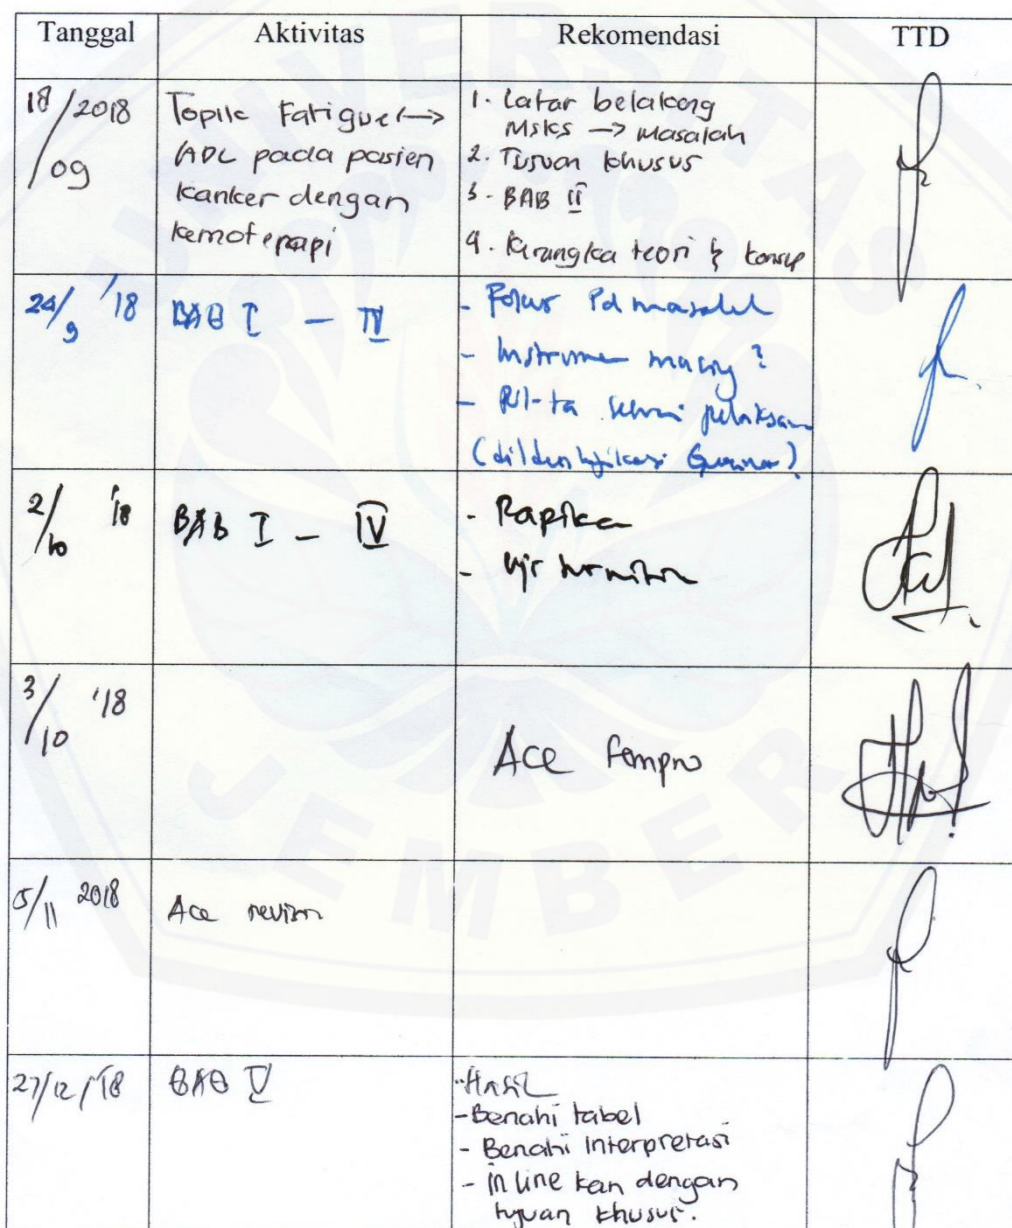 Tanggal Aktivitas Rekomendasi TTD
18/09 2018
Topik Fatigue →
ADL pada pasien
kanker dengan
kemoterapi
1. Latar belakang
MSKS → Masalah
2. Tujuan khusus
3. BAB II
4. Kerangka teori & konsep
24/9 '18
BAB I - IV
- Fokus Pd masalah
- Instrumen
-
2/10 '18
BAB I - IV
- Rapika
- Uji turnitin
3/10 '18
Acc Sempro
5/11 2018
Acc revisi
27/12/'18
BAB V
Hasil
- Benahi tabel
- Benahi Interpretasi
- in line kan dengan
tujuan khusus.
UNIVERSITAS
JEMBER